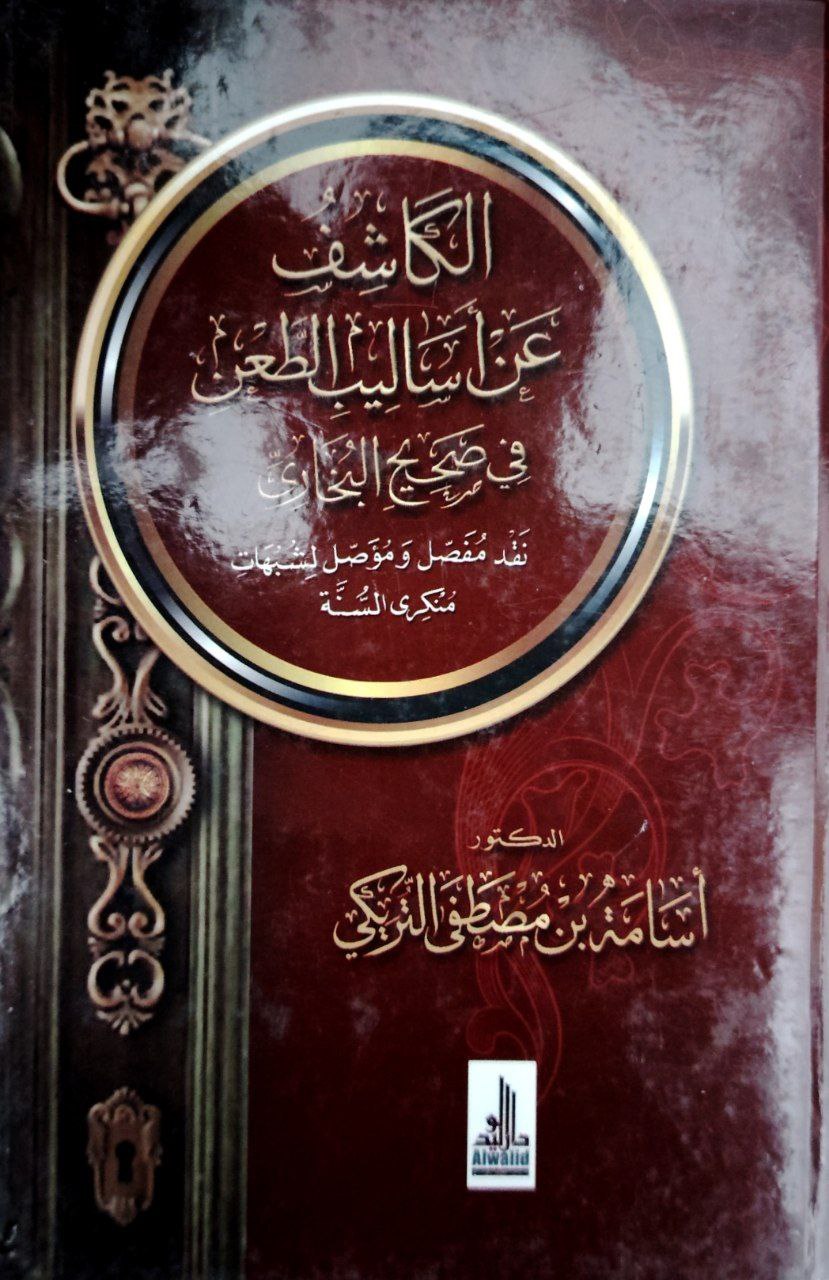 الكَاشِفُ
عَنْ أَسَالِيبِ الطَّعْنِ
فِي صَحِيحِ البُخَارِيِّ
نَقْد مُفَصّل وَمُؤَصّل لِشُبُهَاتِ
مُنْكِرِى السُّنَّة
الدكتور
أُسَامَةُ بْنُ مُصْطَفَى التّرِيكِي
دار الوليد
Alwalid